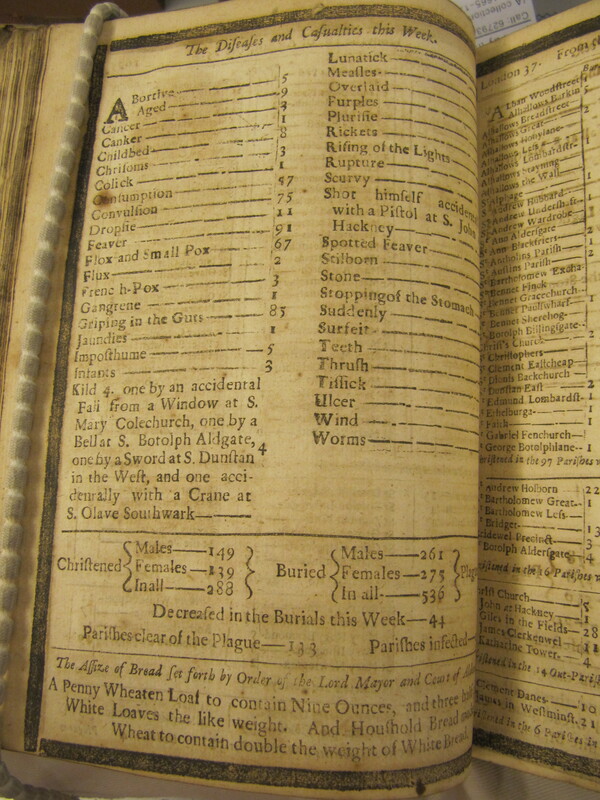 The Diseases and Casualties this Week.
ABortive 5
Aged 9
Cancer 3
Canker 1
Childbed 8
Chrisoms 3
Colick 1
Consumption 57
Convulsion 75
Dropsie 11
Feaver 91
Flox and Small Pox 67
Flux 2
French-Pox 3
Gangrene 1
Griping in the Guts 85
Jaundies 1
Imposthume 5
Infants 3
Kild 4. one by an accidental
Fall from a Window at S.
Mary Colechurch, one by a
Bell at S. Botolph Aldgate,
one by a Sword at S. Dunstan 4
in the West, and one acci-
dentally with a Crane at
S. Olave Southwark
Lunatick
Measles
Overlaid
Purples
Plurisie
Rickets
Rising of the Lights
Rupture
Scurvy
Shot himself
with a Pistol at S. John
Hackney
Spotted Feaver
Stilborn
Stone
Stopping of the Stomach
Suddenly
Surfeit
Teeth
Thrush
Tissick
Ulcer
Wind
Worms
Christened Males 149 Females 139 In all 288
Buried Males 261 Females 275 In all 536
Decreased in the Burials this Week 44
Parishes clear of the Plague 133 Parishes infected
The Assize of Bread set forth by Order of the Lord Mayor and Court of
A Penny Wheaten Loaf to contain Nine Ounces, and three
White Loaves the like weight. And Houshold Bread
Wheat to contain double the weight of White Bread.
London 37. From
Alban Woodstreet
Alhallows Barkin
Alhallows Breadstreet
Alhallows Great
Alhallows Honylane
Alhallows Less
Alhallows Lombardstr
Alhallows Stayning
Alhallows the Wall
Alphage
Andrew Hubbard
Andrew Undershaft
Andrew Wardrobe
Ann Aldersgate
Ann Blackfriers
Antholins Parish
Austins Parish
Bartholomew Excha
Bennet Finck
Bennet Gracechurch
Bennet Paulswharf
Bennet Sherehog
Botolph Billingsgate
Christophers
Clement Eastcheap
Dionis Backchurch
Dunstan East 2
Edmund Lombardst 1
Ethelburga
Faith
Gabriel Fenchurch
George Botolphlane 1
in the 97 Parishes
Andrew Holborn 22
Bartholomew Great 1
Bartholomew Less
Bridget
Bridewel Precinct
Botolph Aldersgate 4
in the 16 Parishes
John at Hackney
Giles in the Fields 28
James Clerkenwel 11
Katharine Tower 4
in the 14 Out-Parishes
Clement Danes
in Westminst.
in the 6 Parishes in